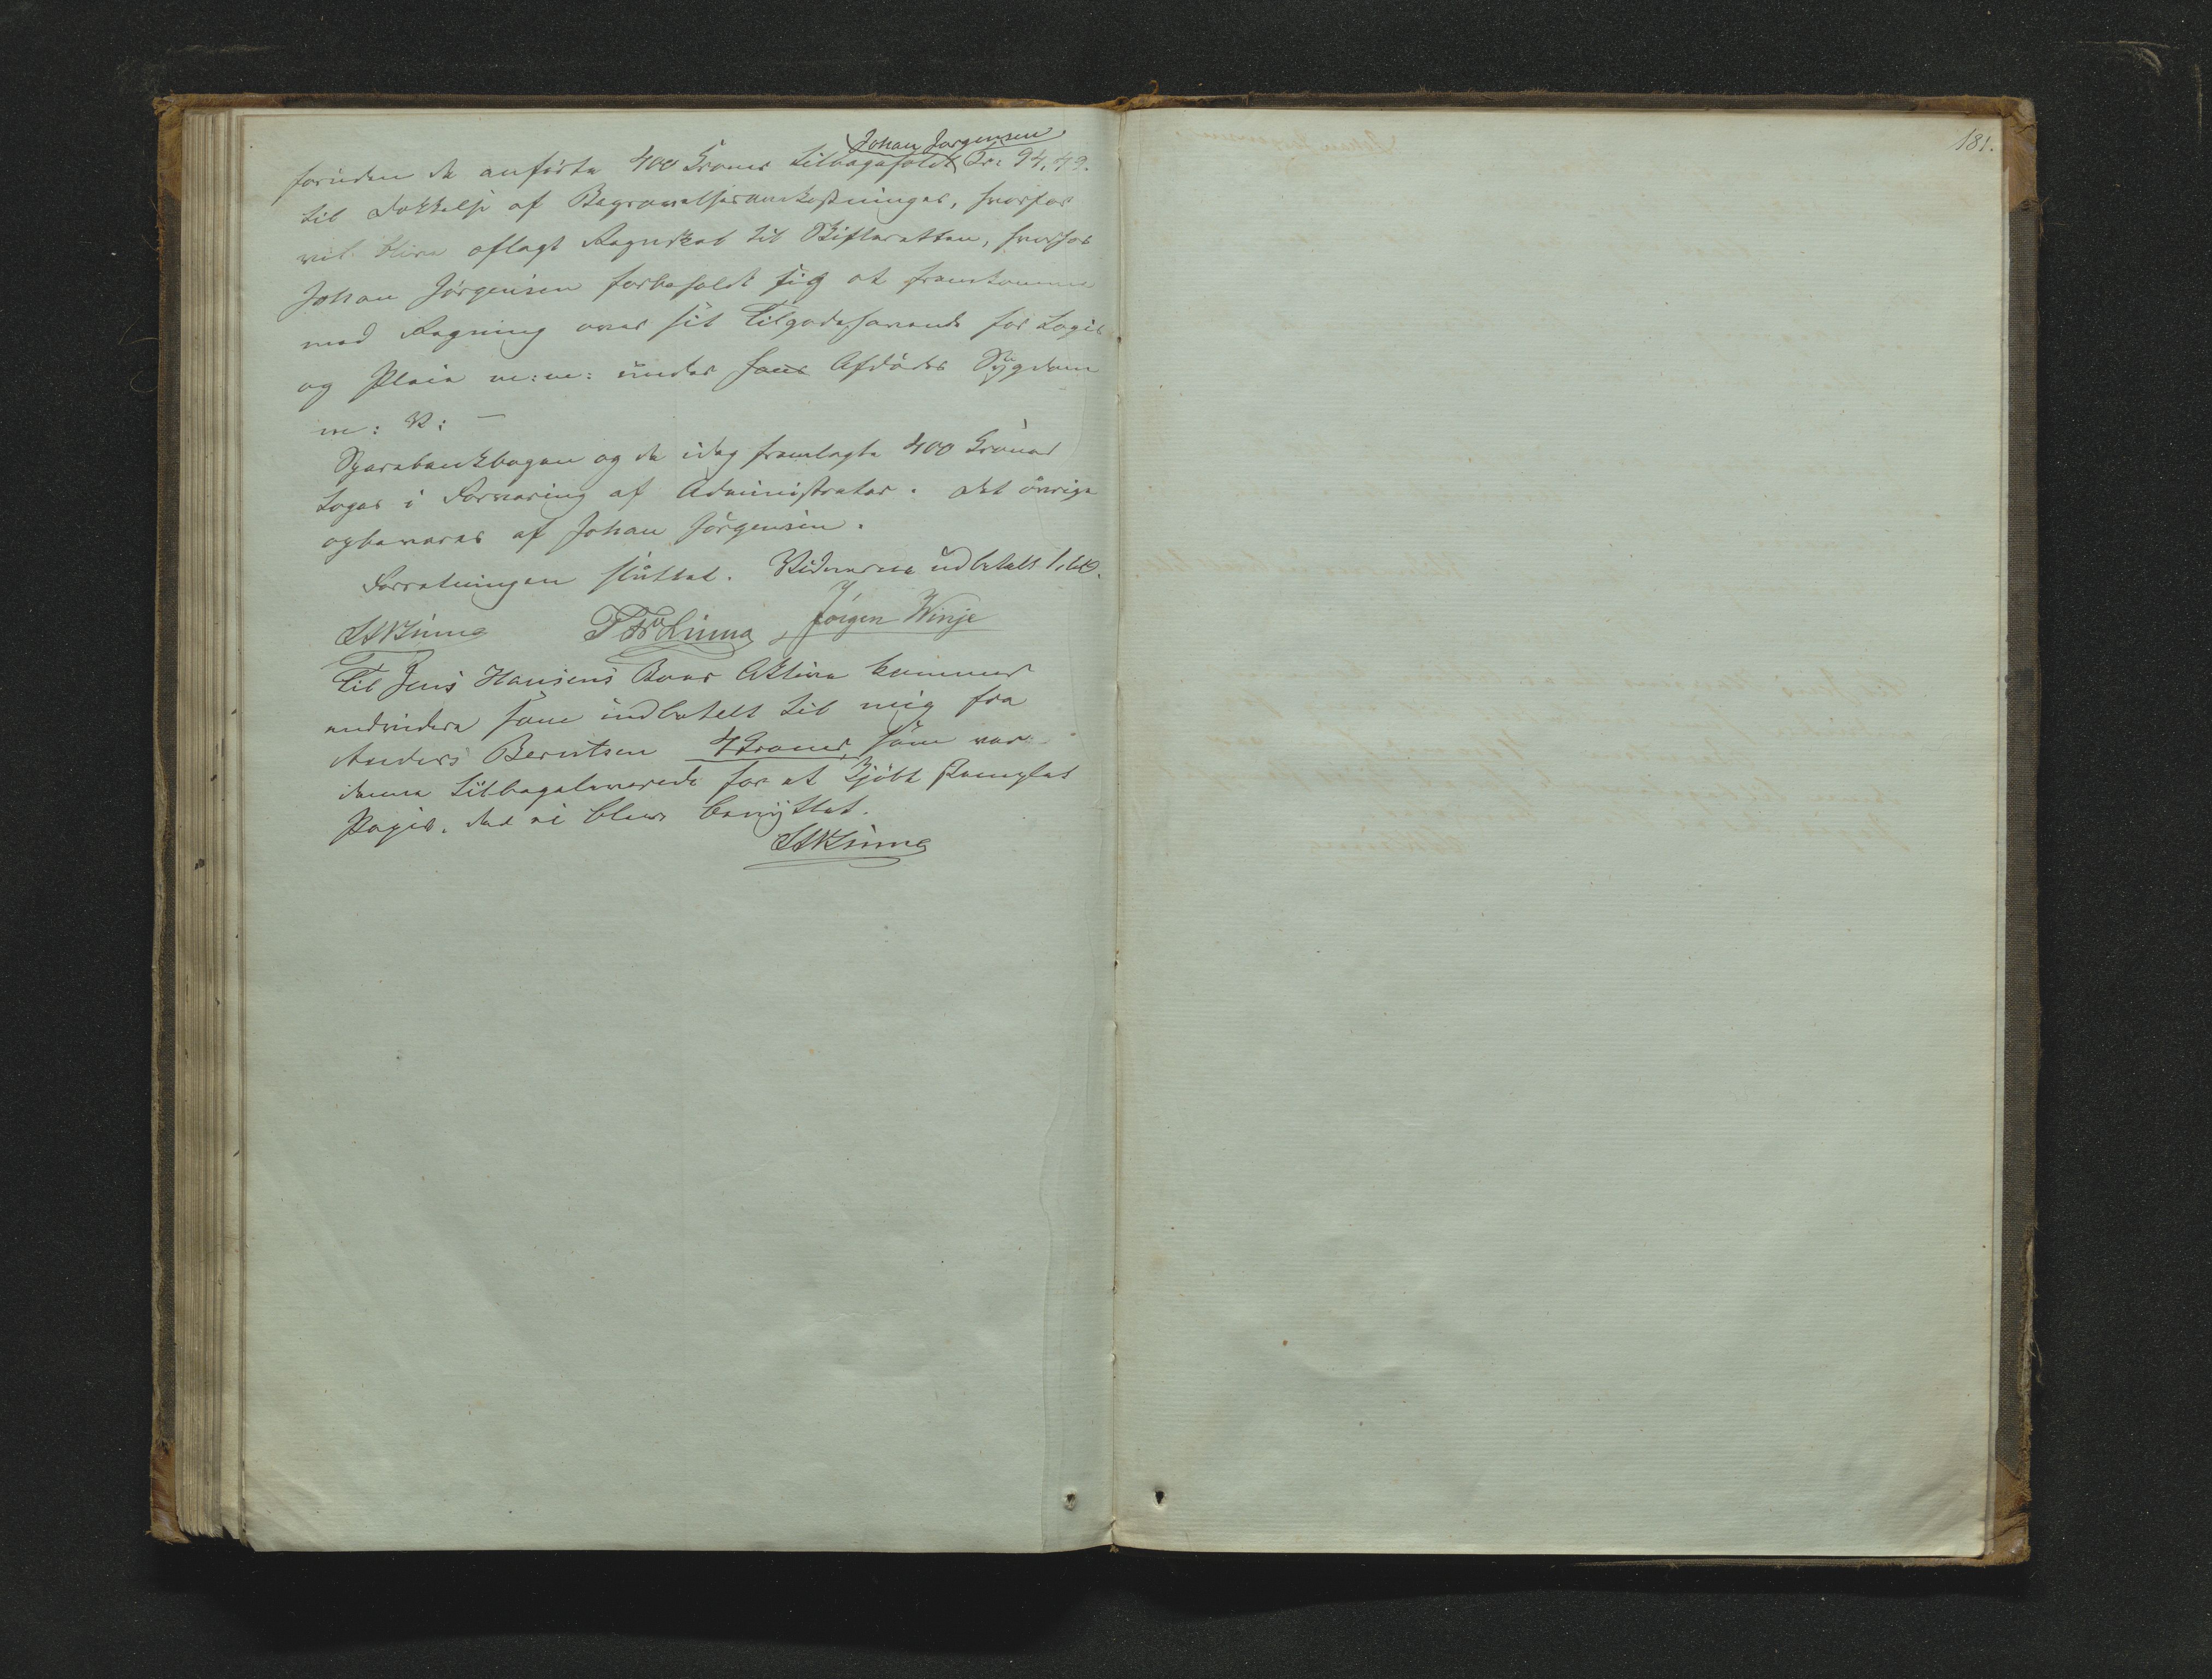 181.
Johan Jørgensen
foruden de anførte 400 Kroner tilbageholdt Kr: 94,49.
til Dækkelse af Begravelsesomkostninger, hvorfor
vil blive aflagt Regnskab til Skifteretten, hvorhos
Johan Jørgensen forbeholdt sig at fremkomme
med Regning over sit Tilgodehavende for Logis
og Pleie m:m: under hans Afdødes Sygdom
m: V: —
Sparebankbogen og de idag fremlagte 400 Kroner
toges i Forvaring af Administrator. Det øvrige
opbevares af Johan Jørgensen.
Forretningen sluttet. Vidnerne udbetalt 1,60.
Jørgen Winje
Til Jens Hansens Boes Aktiva kommer
endvidere som indbetalt til mig fra
Anders Berntsen 4 Kroner, som var
denne tilbageleverede for et kjøbt
da ei blev benyttet.